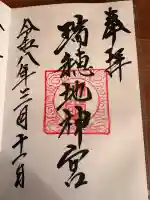 奉拝
瑞穂地神宮
令和八年二月十一日